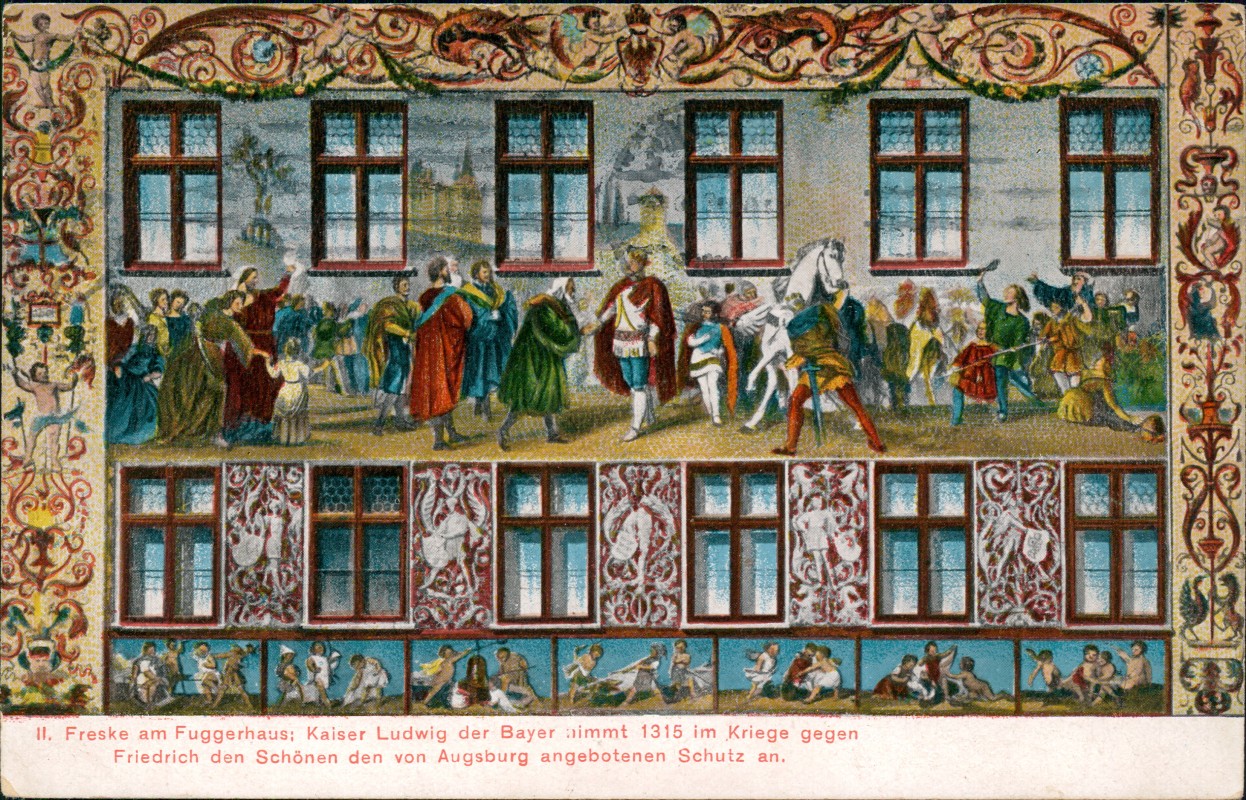 II. Freske am Fuggerhaus; Kaiser Ludwig der Bayer nimmt 1315 im Kriege gegen
Friedrich den Schönen den von Augsburg angebotenen Schutz an.